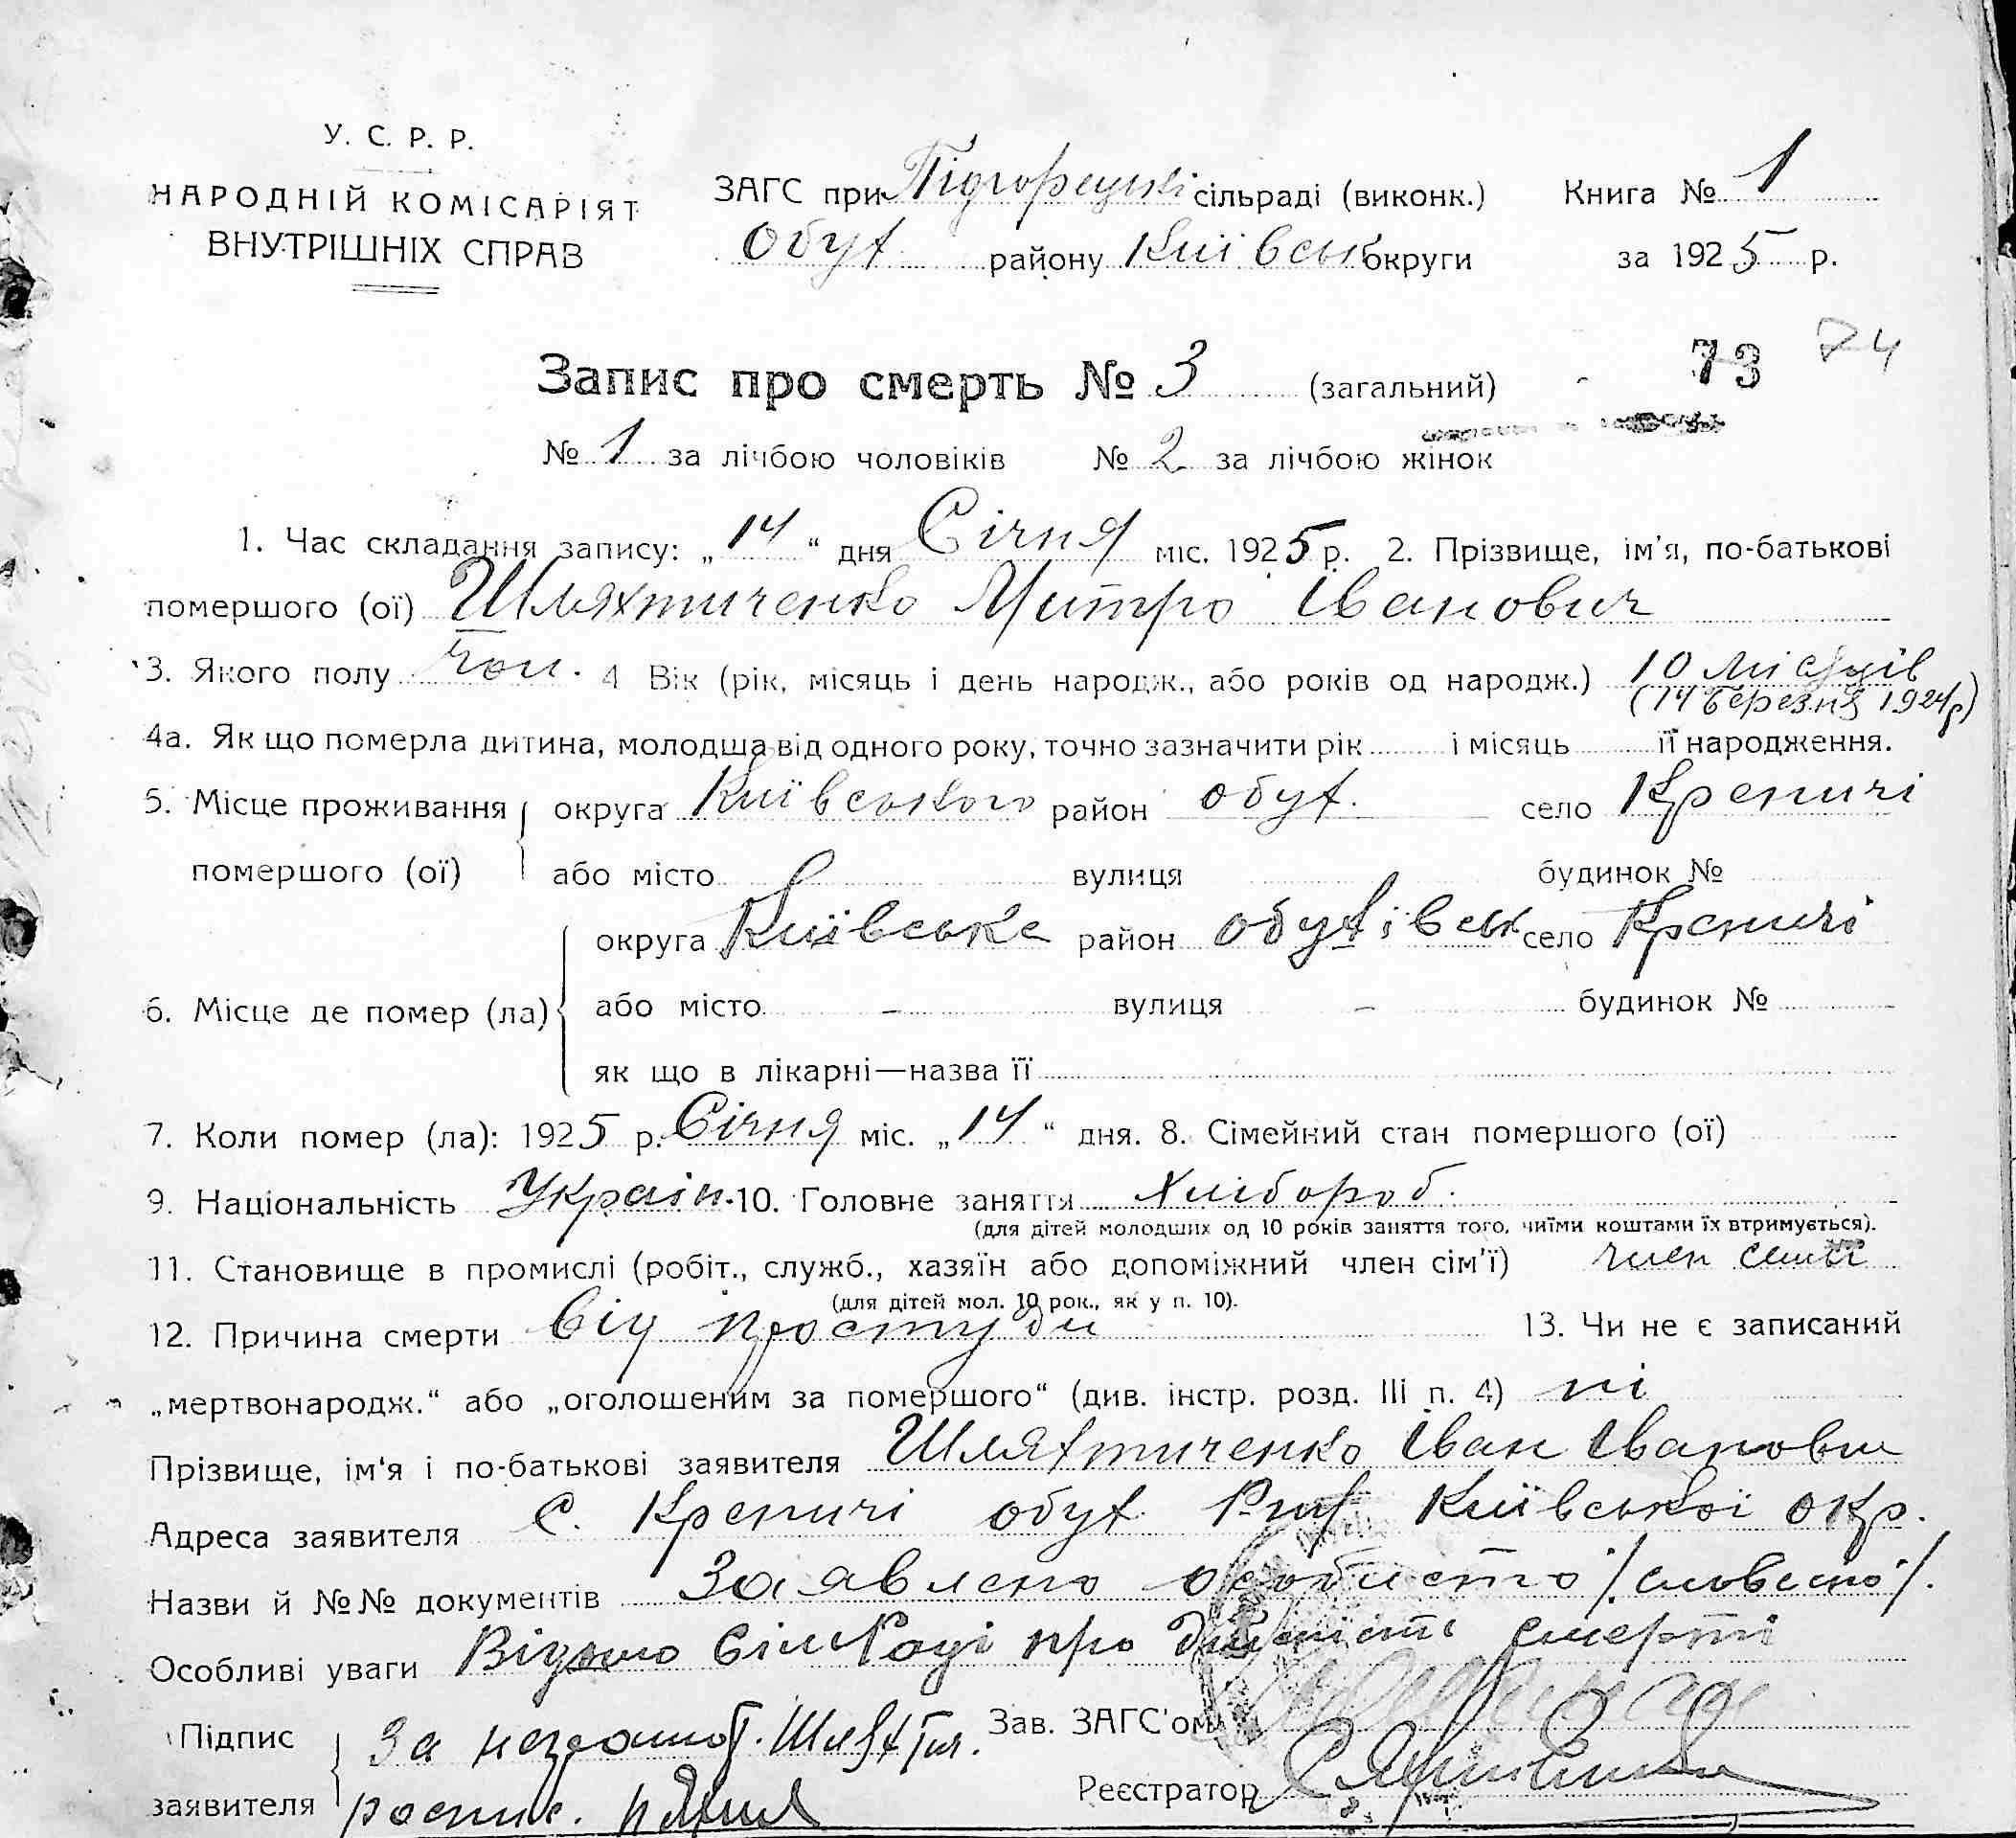 У. С. Р. Р.
НАРОДНІЙ КОМІСАРІЯТ
ВНУТРІШНІХ СПРАВ
ЗАГС при Підгорецькі сільраді (виконк.)
Обух району Київськ округи
Книга № 1
за 1925 р.
Запис про смерть № 3 (загальний)
73 74
№ 1 за лічбою чоловіків № 2 за лічбою жінок
1. Час складання запису: „14“ дня Січня міс. 1925 р. 2. Прізвище, ім'я, по-батькові
помершого (ої) Шляхтиченко Митро Іванович
3. Якого полу чол. 4 Вік (рік, місяць і день народж., або років од народж.) 10 місяців
(14 березня 1924р)
4а. Як що померла дитина, молодша від одного року, точно зазначити рік і місяць її народження.
5. Місце проживання помершого (ої) округа Київського район обух. село Креничі
або місто вулиця будинок №
6. Місце де помер (ла) округа Київське район обухівськ село Креничі
або місто – вулиця – будинок №
як що в лікарні—назва її
7. Коли помер (ла): 1925 р. Січня міс. „14“ дня. 8. Сімейний стан помершого (ої)
9. Національність Україн. 10. Головне заняття Хлібороб.
(для дітей молодших од 10 років заняття того, чиїми коштами їх втримується).
11. Становище в промислі (робіт., служб., хазяїн або допоміжний член сім'ї) член семьї
(для дітей мол. 10 рок., як у п. 10).
12. Причина смерти від простуди 13. Чи не є записаний
„мертвонародж.“ або „оголошеним за помершого“ (див. інстр. розд. III п. 4) ні
Прізвище, ім'я і по-батькові заявителя Шляхтиченко Іван Іванови
Адреса заявителя С. Креничі обух Київської окр.
Назви й №№ документів Заявлено особисто /словесно/.
Особливі уваги Відомо СілРаді про дійсність смерті
Підпис заявителя За неграмот. Шляхтич.
роспис.
Зав. ЗАГС'ом
Реєстратор